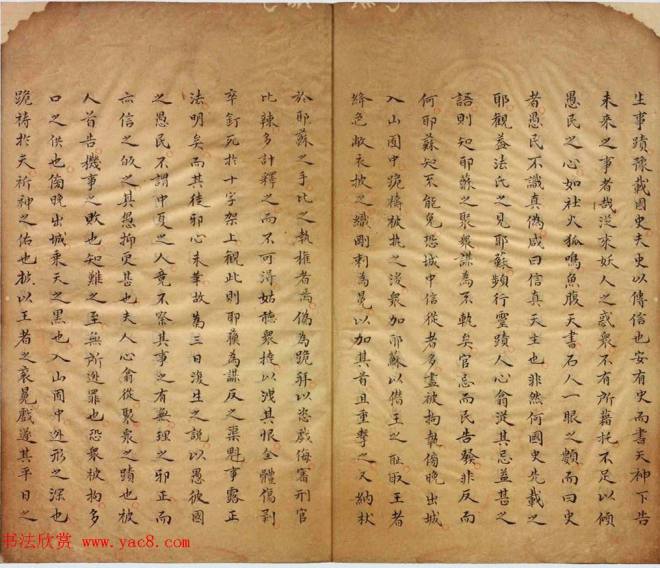 生事蹟豫載國史夫史以傳信也安有史而書天神下告
未來之事者哉從來妖人之惑衆不有所藉托不足以傾
愚民之心如社火狐鳴魚腹天書石人一眼之類而曰史
者愚民不識真偽咸曰信真天主也非然何國史先載之
耶觀蓋法氏之見耶穌頻行靈蹟人心翕從其忌益甚之
語則知耶穌之聚衆謀為不軌矣官忌而民告發非反而
何耶穌知不能免恐城中信從者多盡被拘執傍晚出城
入山囿中跪禱被執之後衆加耶穌以僭王之恥取王者
絳色敝衣披之織剛刺為冕以加其首且重擊之又納杖
於耶穌之手比之執權者焉偽為跪拜以恣戲侮審刑官
比辣多計釋之而不可得姑聽衆撻以洩其恨全體傷剥
卒釘死於十字架上觀此則耶穌為謀反之渠魁事露正
法明矣而其徒邪心未革故為三日復生之說以愚彼國
之愚民不謂中夏之人竟不察其事之有無理之邪正而
亦信之皈之其愚抑更甚也夫人心翕從聚衆之蹟也被
人首告機事之敗也知難之至無所逃罪也恐衆被拘多
口之供也傍晚出城乘天之黑也入山囿中逃形之深也
跪禱於天祈神之佑也披以王者之衮冕戲遂其平日之
书法欣赏 www.yac8.com